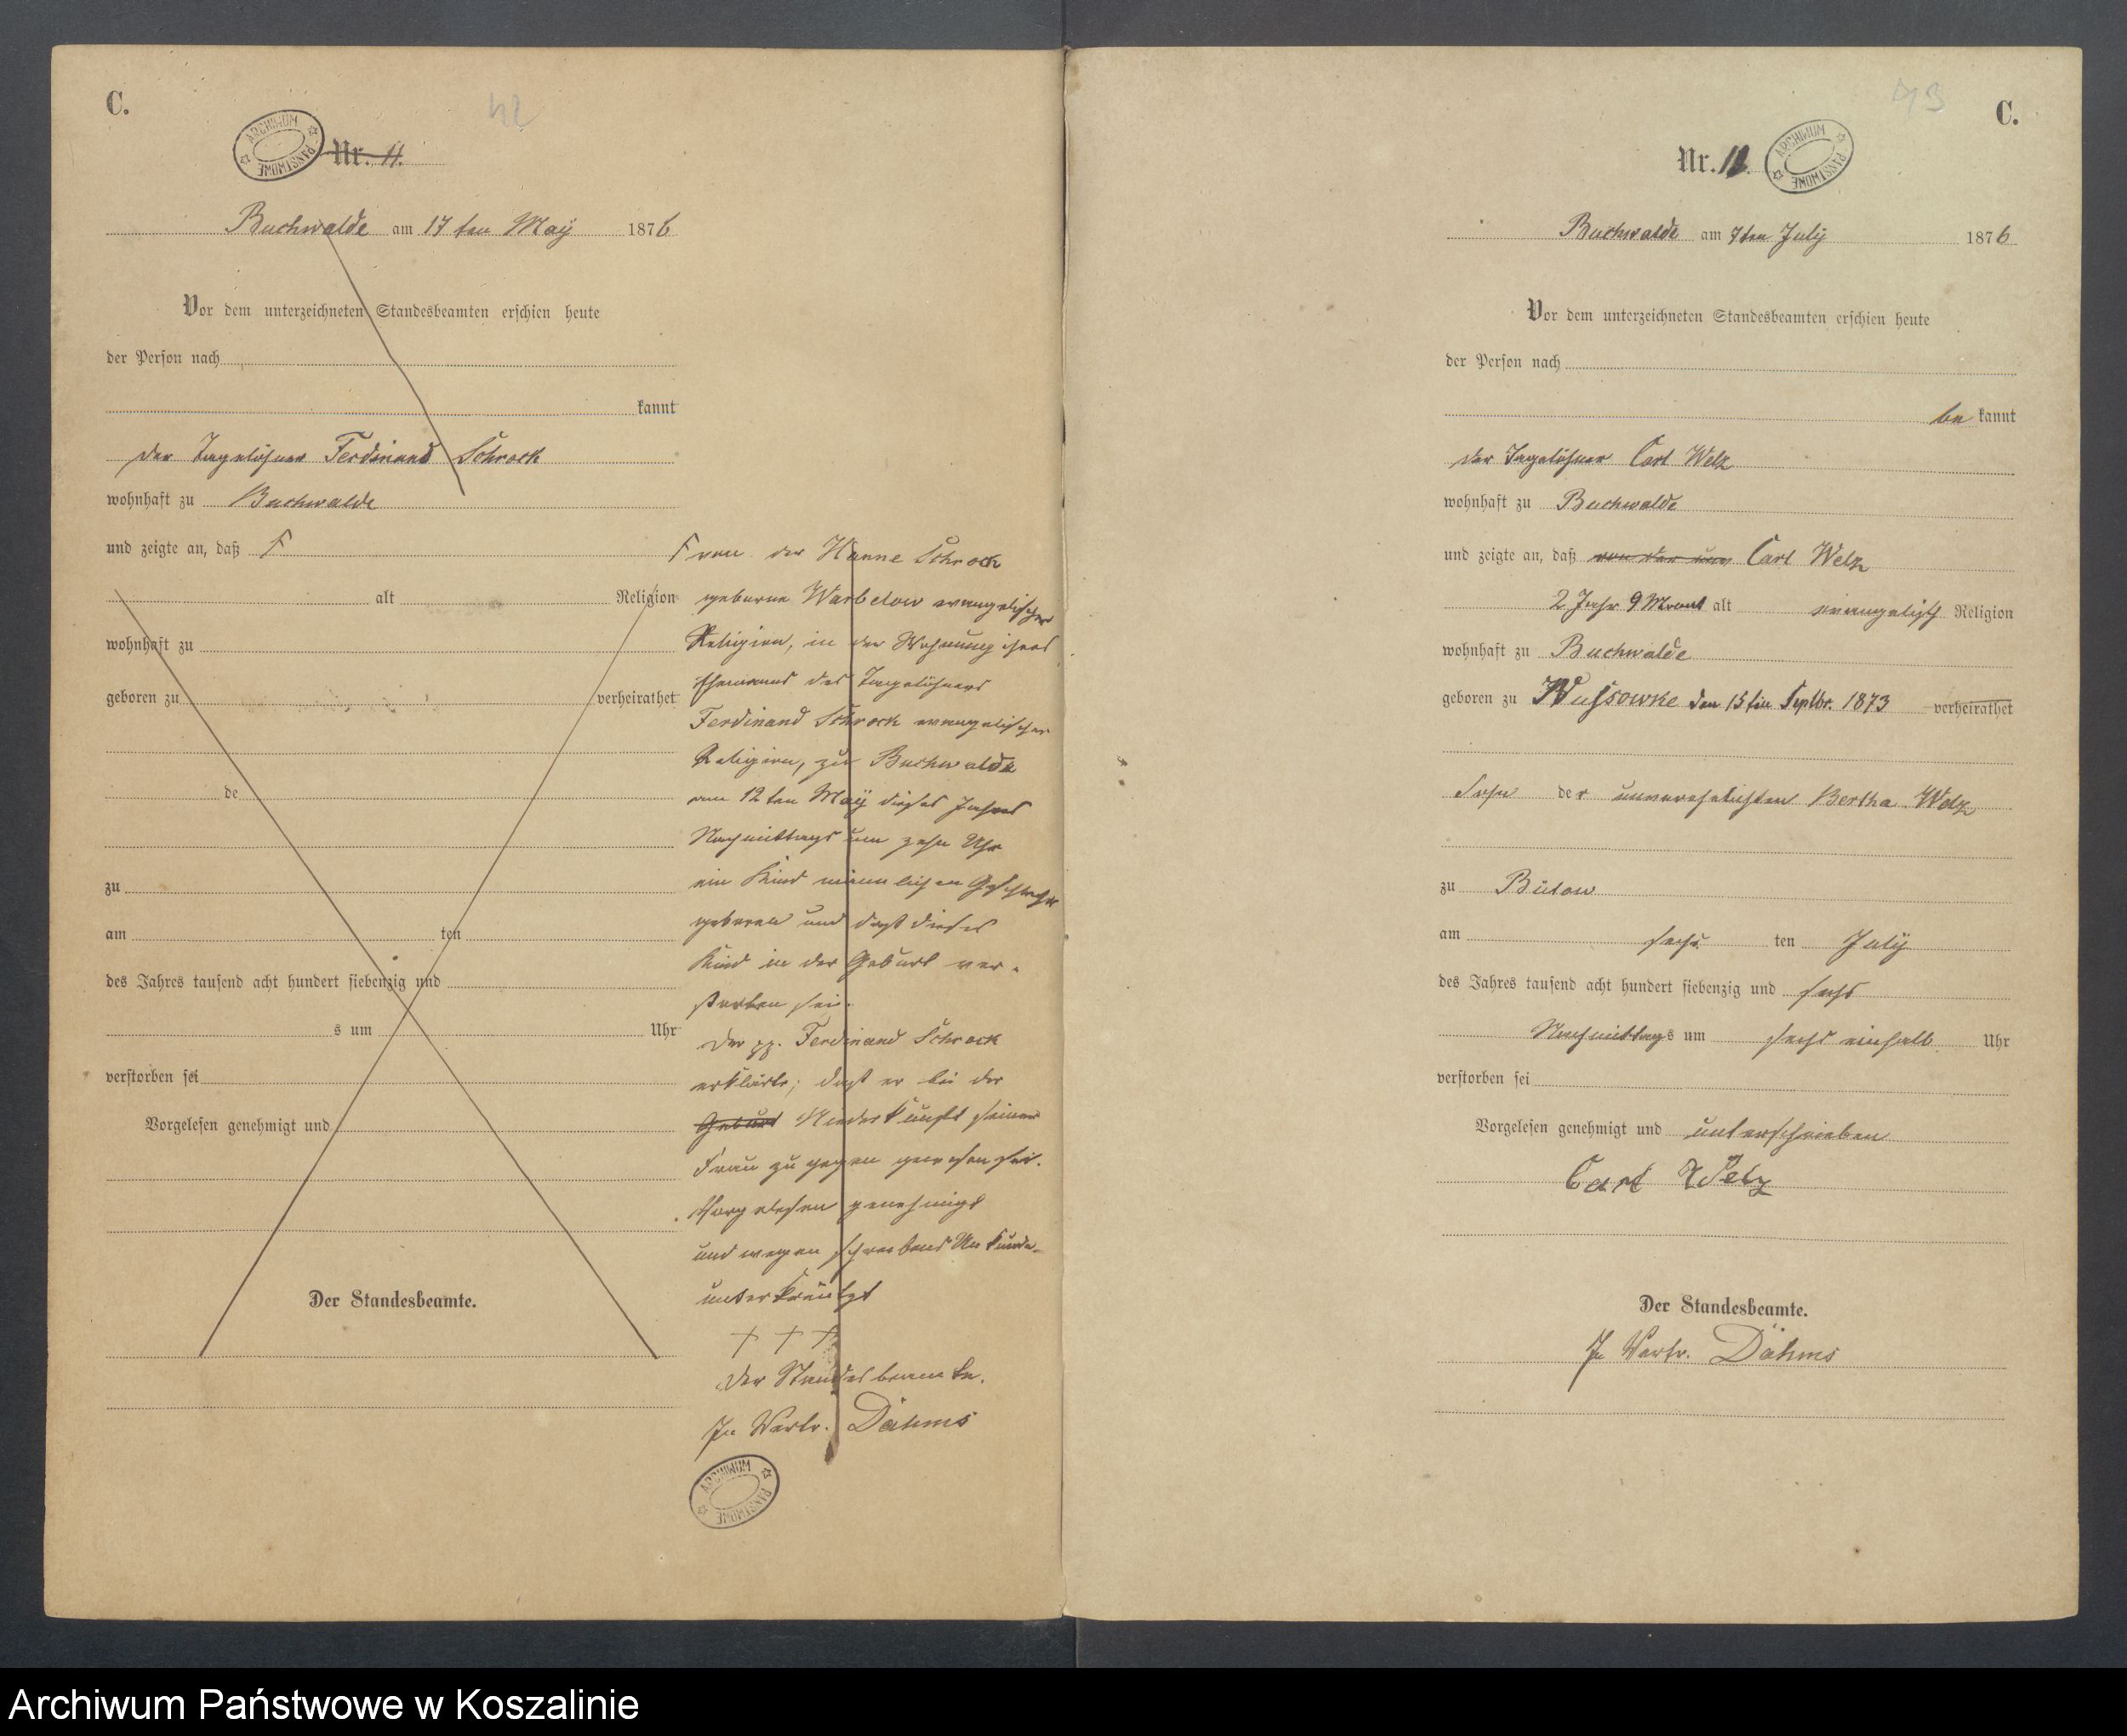 C.
42
ARCHIWUM PAŃSTWOWE
Nr. 11.
Buchwalde am 17 ten May 1876
Vor dem unterzeichneten Standesbeamten erschien heute
der Person nach
kannt
der Tagelöhner Ferdinand Schrock
wohnhaft zu Buchwalde
und zeigte an, daß F
alt Religion
wohnhaft zu
geboren zu verheirathet
de
zu
am ten
des Jahres tausend acht hundert siebenzig und
s um Uhr
verstorben sei
Vorgelesen genehmigt und
Der Standesbeamte.
F von der Hanne Schrock
geborne Warbelow evangelischer
Religion, in der Wohnung ihres
Ehemanns des Tagelöhners
Ferdinand Schrock evangelischer
Religion, zu Buchwalde
am 12 ten May dieses Jahres
Nachmittags um zehn Uhr
ein Kind männlichen Geschlechts
geboren und daß dieses
Kind in der Geburt ver-
storben sei.
Der pp. Ferdinand Schrock
erklärte, daß er bei der
Geburt Niederkunft seiner
Frau zugegen gewesen sei.
Vorgelesen genehmigt
und wegen Schreibens Unkunde
unterkreuzt
† † †
Der Standesbeamte.
In Vertr. Dähms
ARCHIWUM PAŃSTWOWE
43
C.
Nr. 11.
ARCHIWUM PAŃSTWOWE
Buchwalde am 7ten July 1876
Vor dem unterzeichneten Standesbeamten erschien heute
der Person nach
be kannt
der Tagelöhner Carl Welz
wohnhaft zu Buchwalde
und zeigte an, daß von der Carl Welz
2 Jahr 9 Monat alt evangelisch Religion
wohnhaft zu Buchwalde
geboren zu Wussowke den 15ten Septbr. 1873 verheirathet
Sohn der unverehelichten Bertha Welz
zu Bütow
am sechs ten July
des Jahres tausend acht hundert siebenzig und sechs
Nachmittags um sechs einhalb Uhr
verstorben sei
Vorgelesen genehmigt und unterschrieben
Carl Welz
Der Standesbeamte.
In Vertr. Dähms
Archiwum Państwowe w Koszalinie